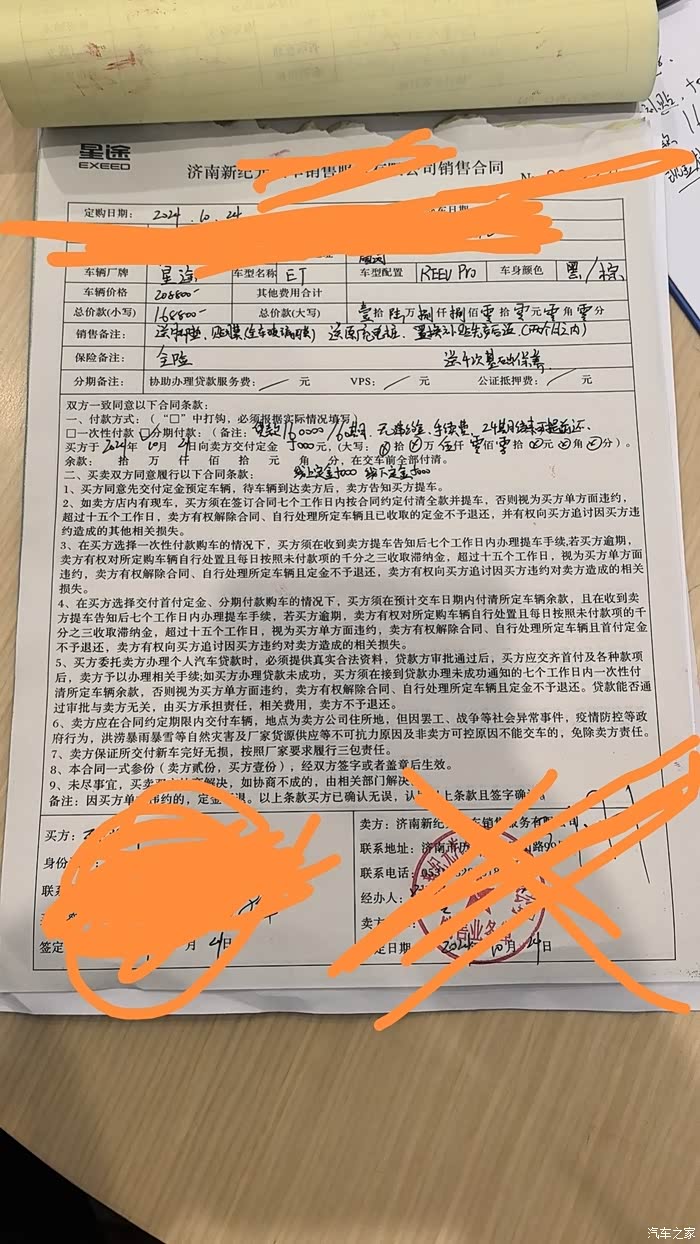 星途
EXEED
济南新纪元 销售服 有限公司销售合同
定购日期: 2024.10.24
车辆厂牌 星途 车型名称 ET 车型配置 REEV Pro 车身颜色 黑/棕
车辆价格 208800 其他费用合计
总价款(小写) 168800 总价款(大写) 壹拾陆万捌仟捌佰零拾零元零角零分
销售备注: 送脚垫、贴膜(全车玻璃 ) 送原厂充电桩、置换补贴 (两个月之内)
保险备注: 全险 送4次基础保养
分期备注: 协助办理贷款服务费: / 元 VPS: / 元 公证抵押费: / 元
双方一致同意以下合同条款:
一、付款方式:(“□”中打钩,必须根据实际情况填写)
□一次性付款 □分期付款:(备注: 贷款160000/60期 24期
买方于2024年10月24日向卖方交付定金 5000元,(大写: 拾 万伍仟零佰零拾 元 角 分)。
余款: 拾 万 仟 佰 拾 元 角 分,在交车前全部付清。
二、买卖双方同意履行以下合同条款: 线上定金5000 线下定金5000
1、买方同意先交付定金预定车辆,待车辆到达卖方后,卖方告知买方提车。
2、如卖方店内有现车,买方须在签订合同七个工作日内按合同约定付清全款并提车,否则视为买方单方面违约,
超过十五个工作日,卖方有权解除合同、自行处理所定车辆且已收取的定金不予退还,并有权向买方追讨因买方违
约造成的其他相关损失。
3、在买方选择一次性付款购车的情况下,买方须在收到卖方提车告知后七个工作日内办理提车手续,若买方逾期,
卖方有权对所定购车辆自行处置且每日按照未付款项的千分之三收取滞纳金,超过十五个工作日,视为买方单方面
违约,卖方有权解除合同、自行处理所定车辆且定金不予退还,卖方有权向买方追讨因买方违约对卖方造成的相关
损失。
4、在买方选择交付首付定金、分期付款购车的情况下,买方须在预计交车日期内付清所定车辆余款,且在收到卖
方提车告知后七个工作日内办理提车手续,若买方逾期,卖方有权对所定购车辆自行处置且每日按照未付款项的千
分之三收取滞纳金,超过十五个工作日,视为买方单方面违约,卖方有权解除合同、自行处理所定车辆且首付定金
不予退还,卖方有权向买方追讨因买方违约对卖方造成的相关损失。
5、买方委托卖方办理个人汽车贷款时,必须提供真实合法资料,贷款方审批通过后,买方应交齐首付及各种款项
后,卖方予以办理相关手续;如买方办理贷款未成功,买方须在接到贷款办理未成功通知的七个工作日内一次性付
清所定车辆余款,否则视为买方单方面违约,卖方有权解除合同、自行处理所定车辆且定金不予退还。贷款能否通
过审批与卖方无关,由买方承担责任,相关费用,卖方不予退还。
6、卖方应在合同约定期限内交付车辆,地点为卖方公司住所地,但因罢工、战争等社会异常事件,疫情防控等政
府行为,洪涝暴雨暴雪等自然灾害及厂家货源供应等不可抗力原因及非卖方可控原因不能交车的,免除卖方责任。
7、卖方保证所交付新车完好无损,按照厂家要求履行三包责任。
8、本合同一式叁份(卖方贰份,买方壹份),经双方签字或者盖章后生效。
9、未尽事宜,买卖双 解决,如协商不成的,由相关部门解决
备注:因买方单 违约的,定金 退。以上条款买方已确认无误,认 上条款且签字确认
买方:
身份
联系
签定 月24日
卖方:济南新纪元 车销售服务有限公司
联系地址:济南市历 路9
联系电话:
经办人:
卖方
定日期: 2024 10月24日
汽车之家